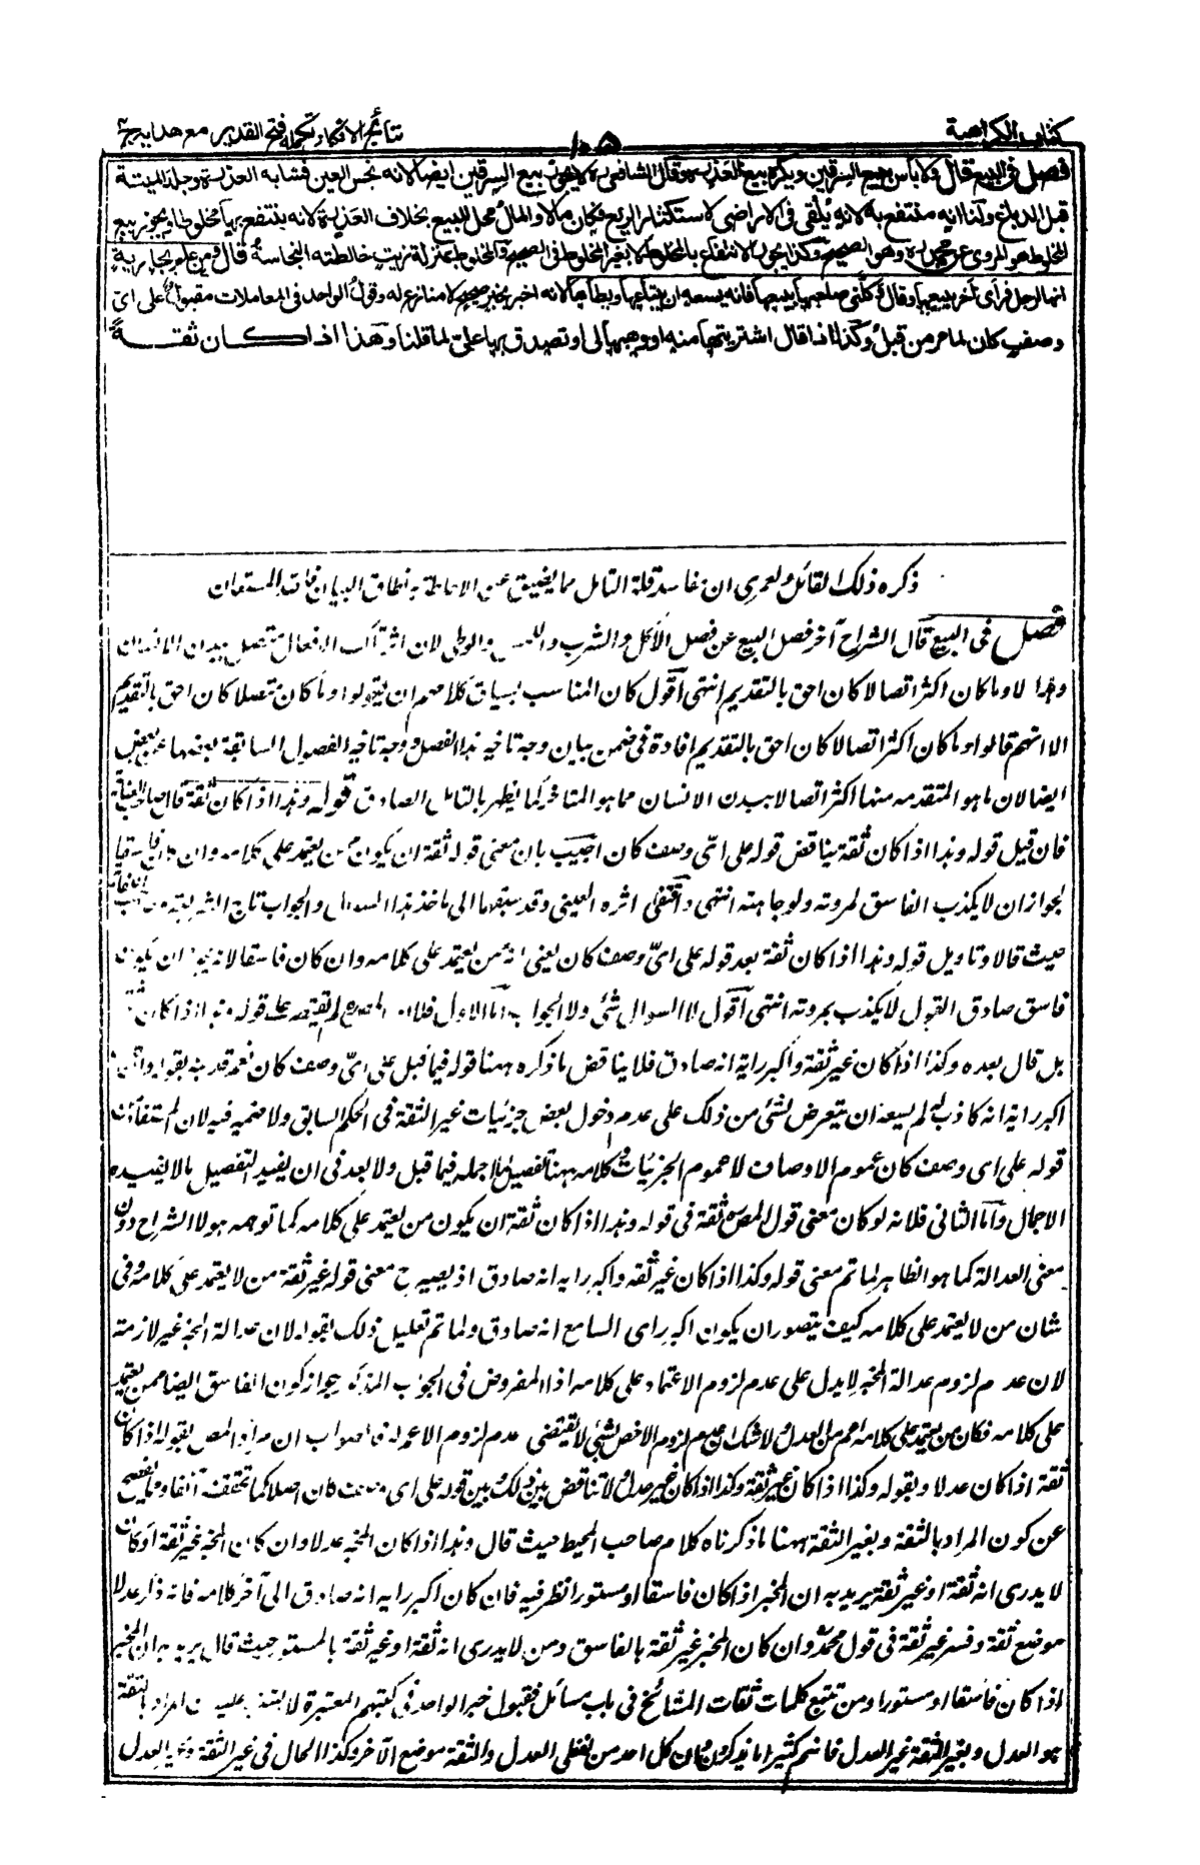 كتاب الكراهية
١٠٥
نتائج الافكار تكملة فتح القدير مع هدايه ج
فصل فى البيع قال ولا بأس ببيع السرقين ويكره بيع العذرة وقال الشافعى لا يجوز بيع السرقين ايضا لانه نجس العين فشابه العذرة وجلد الميتة
قبل الدباغ ولنا انه منتفع به لانه يُلقى فى الاراضى لاستكثار الريع فكان مالا والمال محل للبيع بخلاف العذرة لانه ينتفع بها مخلوطا ويجوز بيع
المخلوط هو المروى عن محمد وهو الصحيح وكذا يجوز الانتفاع بالمخلوط لا بغير المخلوط فى الصحيح والمخلوط بمنزلة زيت خالطته النجاسة قال ومن علم بجارية
انها لرجل فرأى آخر يبيعها وقال وكلنى صاحبها ببيعها فانه يسعه ان يبتاعها ويطأها لانه اخبر بخبر صحيح لا منازع له وقول الواحد فى المعاملات مقبول على اى
وصف كان لما مر من قبل وكذا اذا قال اشتريتها منه او وهبها لى او تصدق بها علىّ لما قلنا وهذا اذا كان ثقة
ذكره ذلك القائل ولعمرى ان مفاسد قلة التامل مما يضيق عن الاحاطة به نطاق البيان فالله المستعان
فصل فى البيع قال الشراح آخر فصل البيع عن فصل الأكل والشرب واللمس والوطى لان اثر تلك الافعال متصل ببدن الانسان
وهذا لا وما كان اكثر اتصالا كان احق بالتقديم انتهى أقول كان المناسب بسياق كلامهم ان يقولوا وما كان متصلا كان احق بالتقديم
الا انهم قالوا وما كان اكثر اتصالا كان احق بالتقديم افادة فى ضمن بيان وجه تاخير هذا الفصل ووجه تاخير الفصول السابقة بعضها عن بعض
ايضا لان ما هو المتقدم منها اكثر اتصالا ببدن الانسان مما هو المتاخر كما يظهر بالتامل الصادق قوله وهذا اذا كان ثقة قال صاحب العناية
فان قيل قوله وهذا اذا كان ثقة يناقض قوله على اىّ وصف كان اجيب بان معنى قوله ثقة ان يكون ممن يعتمد على كلامه وان كان فاسقا
لجواز ان لا يكذب الفاسق لمروته ولوجاهته انتهى واقتفى اثره العينى وقد سبقهما الى ماخذ هذا السوال والجواب تاج الشريعة وصاحب الكفاية
حيث قالا وتاويل قوله وهذا اذا كان ثقة بعد قوله على اىّ وصف كان يعنى انه ممن يعتمد على كلامه وان كان فاسقا لانه يجوز ان يكون
فاسق صادق القول لا يكذب بمروته انتهى أقول لا السوال شئ ولا الجواب أما الاول فلان المصنف لم يقتصر على قوله وهذا اذا كان ثقة
بل قال بعده وكذا اذا كان غير ثقة وأكبر رايه انه صادق فلا يناقض ما ذكره ههنا قوله فيما قبل على اىّ وصف كان نعم قد بينه بقوله وان كان
اكبر رايه انه كاذب لم يسعه ان يتعرض بشئ من ذلك على عدم دخول بعض جزئيات غير الثقة فى الحكم السابق ولا ضير فيه لان المستفاد من
قوله على اى وصف كان عموم الاوصاف لا عموم الجزئيات وكلامه ههنا تفصيل لما اجمله فيما قبل ولا بعد فى ان يفيد التفصيل ما لا يفيده
الاجمال وأما الثانى فلانه لو كان معنى قول المصنف ثقة فى قوله وهذا اذا كان ثقة ان يكون من يعتمد على كلامه كما توهمه هولاء الشراح دون
معنى العدالة كما هو الظاهر لما تم معنى قوله وكذا اذا كان غير ثقة واكبر رايه انه صادق اذ يصير ح معنى قوله غير ثقة من لا يعتمد على كلامه وفى
شان من لا يعتمد على كلامه كيف يتصور ان يكون اكبر راى السامع انه صادق ولما تم تعليل ذلك بقوله لان عدالة المخبر غير لازمة
لان عدم لزوم عدالة المخبر لا يدل على عدم لزوم الاعتماد على كلامه اذ المفروض فى الجواب المذكور جواز كون الفاسق ايضا ممن يعتمد
على كلامه فكان من يعتمد على كلامه اعم من العدل ولا شك ان عدم لزوم الاخص لشئ لا يقتضى عدم لزوم الاعم له فالصواب ان مراد المص بقوله اذا كان
ثقة اذا كان عدلا وبقوله وكذا اذا كان غير ثقة وكذا اذا كان غير عدل ولا تناقض بين ذلك وبين قوله على اى وصف كان اصلا كما تحققت آنفا ومما يفصح
عن كون المراد بالثقة وبغير الثقة ههنا ما ذكرناه كلام صاحب المحيط حيث قال وهذا اذا كان المخبر عدلا وان كان المخبر غير ثقة او كان
لا يدرى انه ثقة او غير ثقة يريد به ان المخبر اذا كان فاسقا او مستورا نظر فيه فان كان أكبر رايه انه صادق الى آخر كلامه فانه ذكر عدلا
موضع ثقة وفسر غير ثقة فى قول محمد وان كان المخبر غير ثقة بالفاسق ومن لا يدرى انه ثقة او غير ثقة بالمستور حيث قال يريد به ان المخبر
اذا كان فاسقا او مستورا ومن تتبع كلمات ثقات المشائخ فى باب مسائل قبول خبر الواحد فى كتبهم المعتبرة لا يشتبه عليه ان المراد بالثقة
هو العدل وبغير الثقة غير العدل فانهم كثيرا ما يذكرون كل احد من لفظى العدل والثقة موضع الآخر وكذا الحال فى غير الثقة وغير العدل